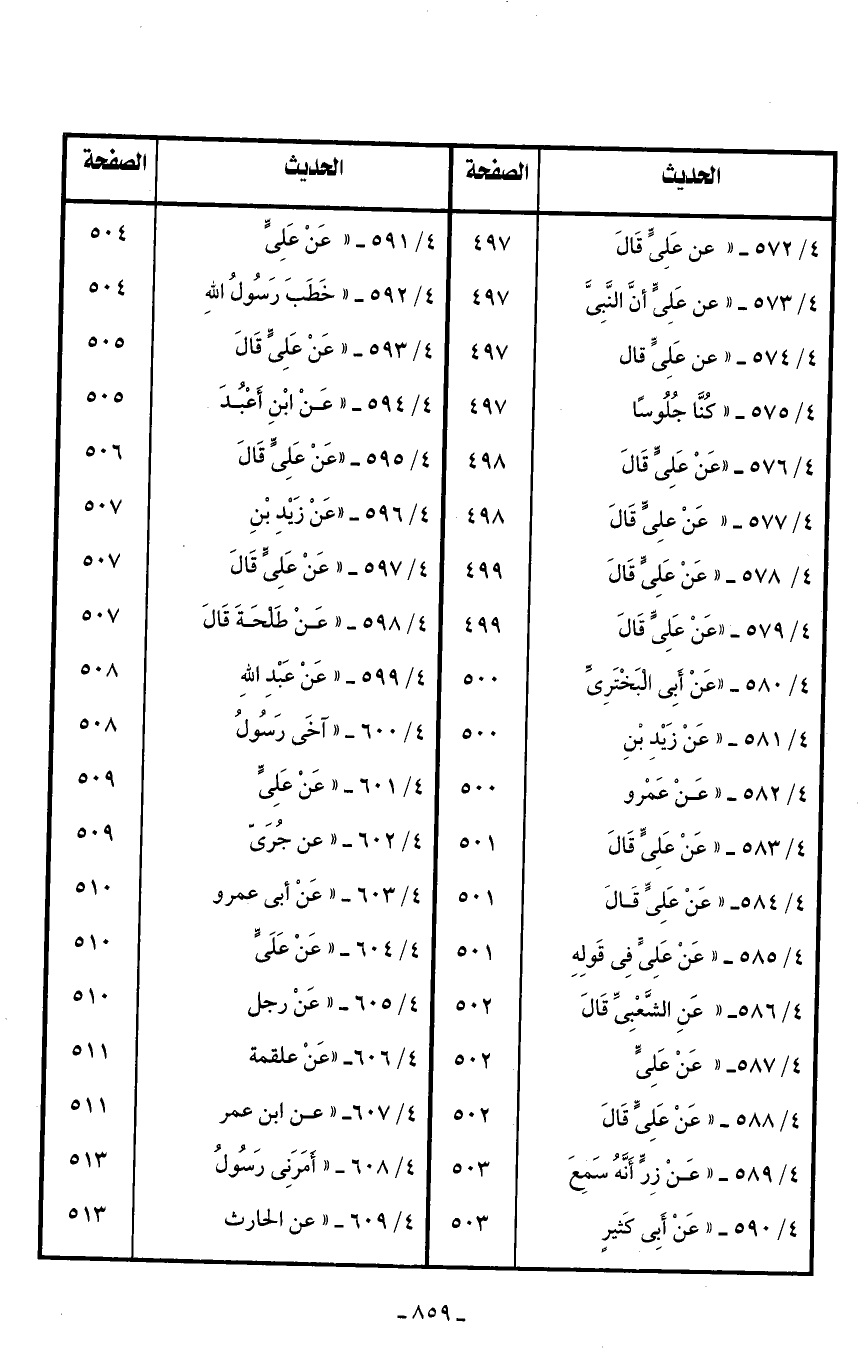 الحديث الصفحة الحديث الصفحة
٤/ ٥٧٢ ـ « عن عَلِىٍّ قَالَ ٤٩٧ ٤/ ٥٩١ ـ « عَنْ عَلِىٍّ ٥٠٤
٤/ ٥٧٣ ـ « عن عَلِىٍّ أنَّ النَّبِىَّ ٤٩٧ ٤/ ٥٩٢ ـ « خَطَبَ رَسُولُ اللهِ ٥٠٤
٤/ ٥٧٤ ـ « عن عَلِىٍّ قال ٤٩٧ ٤/ ٥٩٣ ـ « عَنْ عَلِىٍّ قَالَ ٥٠٥
٤/ ٥٧٥ ـ « كُنَّا جُلُوسًا ٤٩٧ ٤/ ٥٩٤ ـ « عَـنْ ابْنِ أَعْبُـدَ ٥٠٥
٤/ ٥٧٦ ـ «عَنْ عَلِىٍّ قَالَ ٤٩٨ ٤/ ٥٩٥ ـ «عَنْ عَلِىٍّ قَالَ ٥٠٦
٤/ ٥٧٧ ـ « عَنْ علِىٍّ قَالَ ٤٩٨ ٤/ ٥٩٦ ـ «عَنْ زَيْدِ بْنِ ٥٠٧
٤/ ٥٧٨ ـ « عَنْ عَلِىٍّ قَالَ ٤٩٩ ٤/ ٥٩٧ ـ « عَنْ عَلِىٍّ قَالَ ٥٠٧
٤/ ٥٧٩ ـ «عَنْ عَلِىٍّ قَالَ ٤٩٩ ٤/ ٥٩٨ ـ « عَـنْ طَلْحَـةَ قَالَ ٥٠٧
٤/ ٥٨٠ ـ «عَنْ أَبِى الْبَخْتَرِىِّ ٥٠٠ ٤/ ٥٩٩ ـ « عَنْ عَبْدِ اللهِ ٥٠٨
٤/ ٥٨١ ـ « عَنْ زَيْدِ بْنِ ٥٠٠ ٤/ ٦٠٠ ـ « آخَى رَسُولُ ٥٠٨
٤/ ٥٨٢ ـ « عَـنْ عَمْرو ٥٠٠ ٤/ ٦٠١ ـ « عَنْ عَلِىٍّ ٥٠٩
٤/ ٥٨٣ ـ « عَنْ عَلِىٍّ قَالَ ٥٠١ ٤/ ٦٠٢ ـ « عن جُرَىّ ٥٠٩
٤/ ٥٨٤ـ « عَنْ عَلِىٍّ قَـالَ ٥٠١ ٤/ ٦٠٣ ـ « عَنْ أبى عمرو ٥١٠
٤/ ٥٨٥ ـ « عَنْ عَلِىٍّ فِى قَولِهِ ٥٠١ ٤/ ٦٠٤ ـ « عَنْ عَلَىٍّ ٥١٠
٤/ ٥٨٦ـ « عَنِ الشَّعْبِىِّ قَالَ ٥٠٢ ٤/ ٦٠٥ ـ « عَنْ رجل ٥١٠
٤/ ٥٨٧ـ « عَنْ عَلِىٍّ ٥٠٢ ٤/ ٦٠٦ـ «عَنْ علقمة ٥١١
٤/ ٥٨٨ ـ « عَنْ عَلِىٍّ قَالَ ٥٠٢ ٤/ ٦٠٧ـ « عـن ابن عمر ٥١١
٤/ ٥٨٩ ـ « عَـنْ زِرٍّ أَنَّهُ سَمِعَ ٥٠٣ ٤/ ٦٠٨ ـ « أَمَرَنِى رَسُولُ ٥١٣
٤/ ٥٩٠ ـ « عَنْ أَبِى كَثيرٍ ٥٠٣ ٤/ ٦٠٩ ـ « عن الحارث ٥١٣
ـ ٨٥٩ ـ